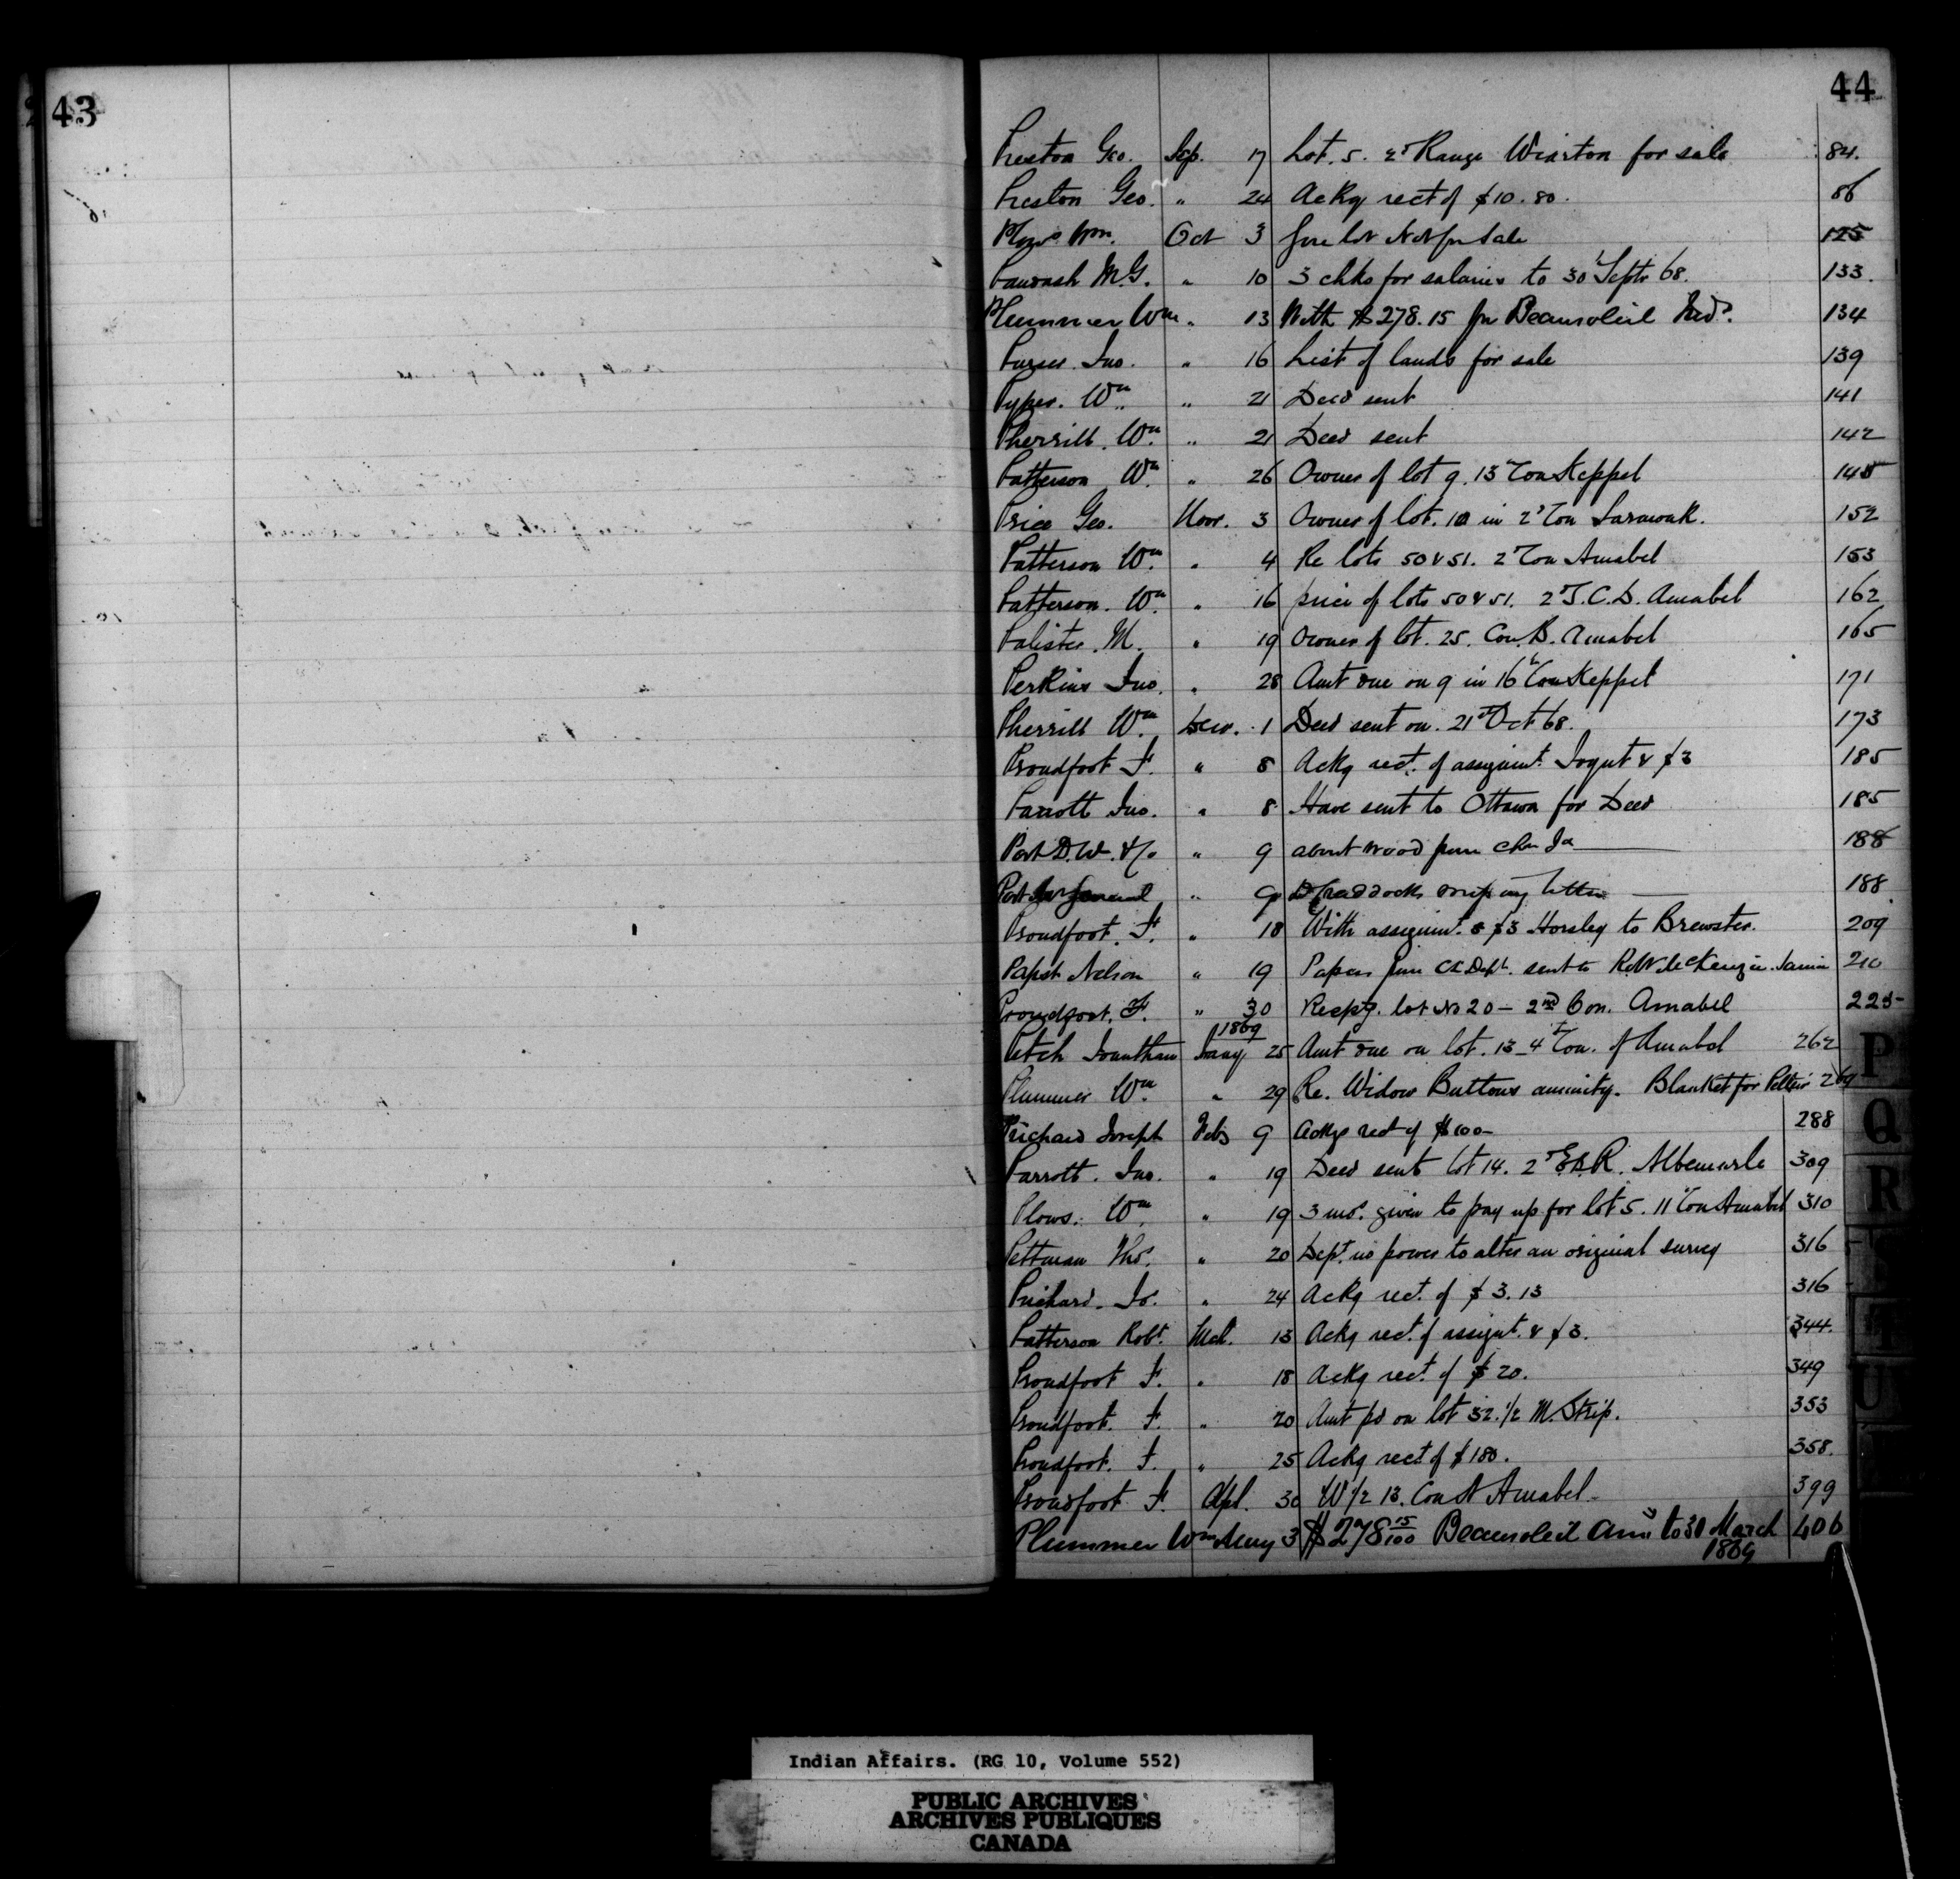 43
44
Preston Geo. Sep. 17 Lot. 5. 2d Range Wiarton for sale 84.
Preston Geo. " 24 Ackg rect of $10.80. 86
Plows Wm. Oct 3 lot Not for Sale 125
Pawash M.G. " 10 3 chks for salaries to 30 Septr 68. 133.
Plummer Wm " 13 With $278.15 for Beausoleil Inds. 134
Purser Jno. " 16 List of lands for sale 139
Pyper. Wm " 21 Deed sent 141
Pherrill. Wm. " 21 Deed sent 142
Patterson Wm. " 26 Owner of lot 9. 13th Con Keppel 145
Price Geo. Nov. 3 Owner of lot. 10 in 2d Con Sarawak. 152
Patterson Wm. " 4 Re lots 50 & 51. 2d Con Amabel 153
Patterson. Wm. " 16 price of lots 50 & 51. 2d Amabel 162
Palister. M. " 19 Owner of lot. 25. Con. B. Amabel 165
Perkins Jno. " 28 Amt due on 9 in 16th Con Keppel 171
Pherrill Wm. Decr. 1 Deed sent on. 21st Oct 68. 173
Proudfoot F. " 8 Ackg rect. of assignmt. & $3 185
Parrott Jno. " 8 Have sent to Ottawa for Deed 185
Post D.W. & Co " 9 about wood from 188
Post Mr General " 9 letter 188
Proudfoot. F. " 18 With assignmt. & $3 Horsley to Brewster. 209
Papst Nelson " 19 Papers from CL Dept. sent to R. McKenzie. Sarnia 210
Proudfoot. F. " 30 Respg. lot No 20 - 2nd Con. Amabel 225
1869
Petch Jonathan Jany 25 Amt due on lot. 13 - 4th Con. of Amabel 262
Plummer Wm. " 29 Re. Widow Buttons annuity. Blanket for 269
Prichard Joseph Feby 9 Ackge rect of $100- 288
Parrott. Jno. " 19 Deed sent lot 14. 2d E.B.R. Albemarle 309
Plows. Wm. " 19 3 mos. given to pay up for lot 5. 11th Con Amabel 310
Pettman Thos. " 20 Dept. no power to alter an original survey 316
Prichard. Jos. " 24 Ackg rect. of $3.13 316
Patterson Robt. Mch. 13 Ackg rect. of assignt. & $3. 344.
Proudfoot F. " 18 Ackg rect. of $20. 349
Proudfoot. F. " 20 Amt pd on lot 32. 1/2 M. Strip. 353
Proudfoot. F. " 25 Ackg rect. of $180. 358.
Proudfoot F. Apl. 30 W 1/2 13. Con A Amabel. 399
Plummer Wm May 3 $278 15/100 Beausoleil Anns to 31 March 1869 406
P
Q
R
U
Indian Affairs. (RG 10, Volume 552)
PUBLIC ARCHIVES
ARCHIVES PUBLIQUES
CANADA